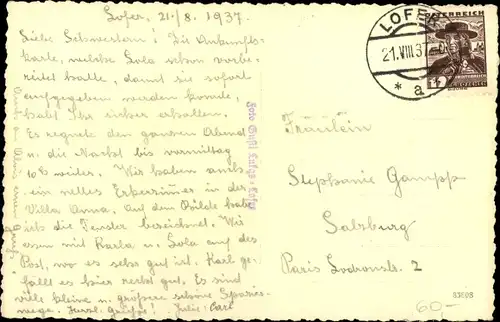 Lofer, 21/8. 1937.
Liebe Schwestern! Die Ankunfts-
karte, welche Lola schon vorbe-
reitet hatte, damit sie sofort
aufgegeben werden konnte,
habt Ihr sicher erhalten.
Es regnet den ganzen Abend
u. die Nacht bis vormittag
10h weiter. Wir haben auch
ein nettes Erkerzimer in der
Villa Anna. Auf dem Bilde habe
ich die Fenster bezeichnet. Wir
essen mit Karla u. Lola auf der
Post, wo es sehr gut ist. Karl ge-
fällt es hier recht gut. Es sind
viele kleine u. größere schöne Spazier-
wege. Herzl. Grüße! Julie: Carl
Foto Gußl Luise Lofer
LOFER
21.VIII.37
* a *
ÖSTERREICH
12
Fräulein
Stephanie Gampp
Salzburg
Paris Lodronstr. 2
60,-